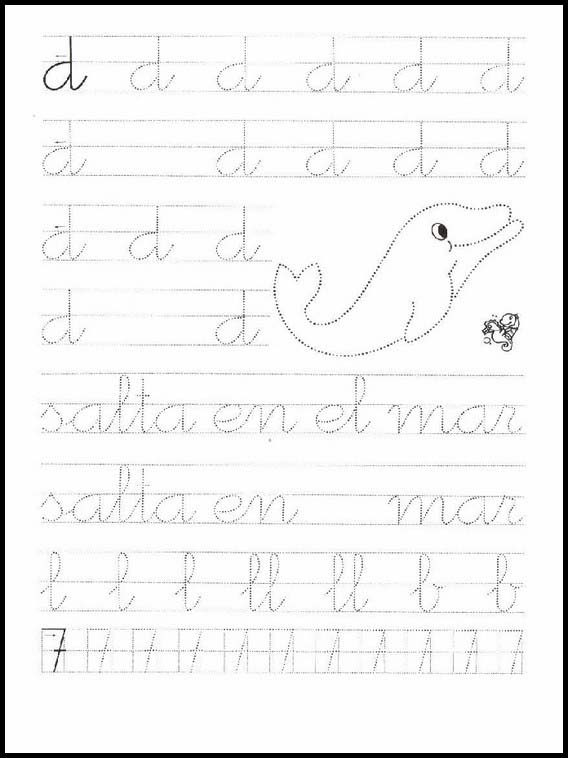 d d d d d d
d d d d d
d d d
d d
salta en el mar
salta en mar
l l l ll ll b b
7 7 7 7 7 7 7 7 7 7 7